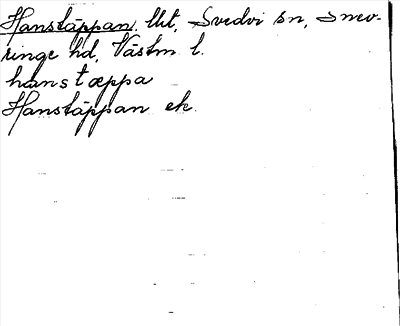 Hanstäppan. lht, Svedvi sn, Snev-
ringe hd, Västm l.
hanstæppa
Hanstäppan ek.